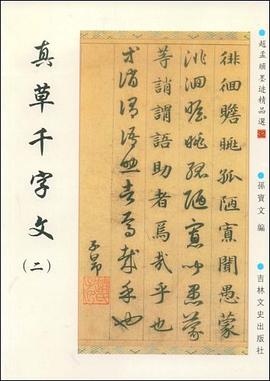 真草千字文
(二)
徘徊瞻眺孤陋寡聞愚蒙
徘徊瞻眺孤陋寡聞愚蒙
等誚謂語助者焉哉乎也
等誚謂語助者焉哉乎也
子昂
趙孟頫墨迹精品選
孫寶文 編
吉林文史出版社